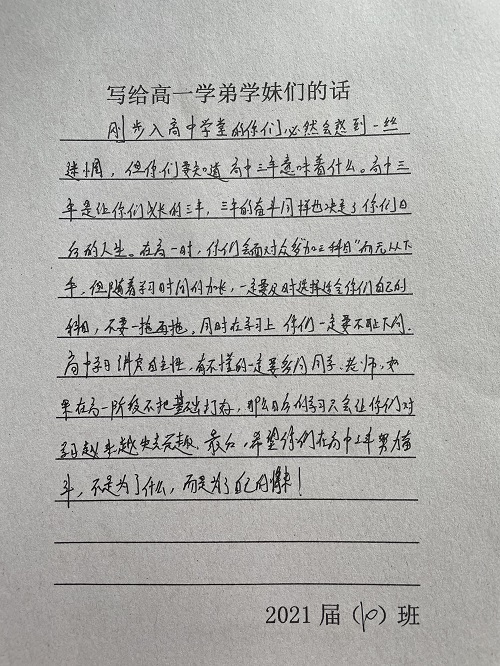 写给高一学弟学妹们的话
刚步入高中学堂的你们,必然会感到一丝
迷惘,但你们要知道高中三年意味着什么。高中三
年是让你们成长的三年,三年的奋斗同样也决定了你们日
后的人生。在高一时,你们会面对众多"加三科目"而无从下
手,但随着学习时间的加长,一定要及时选择适合你们自己的
科目,不要一拖再拖。同时在学习上你们一定要不耻下问。
高中学习讲究自主性,有不懂的一定要多问同学、老师,如
果在高一阶段不把基础打好,那么日后的学习只会让你们对
学习越来越失去兴趣。最后,希望你们在高中三年努力奋
斗,不是为了什么,而是为了自己的将来!
2021届(10)班